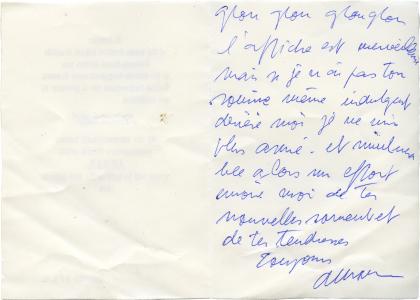 glou glou glouglou
l'affiche est merveilleuse
mais si je n'ai pas ton
sourire même indulgent
derière moi je ne suis
plus armé. et
alors un effort
envoie moi de tes
nouvelles souvent et
de tes tendresses
toujours